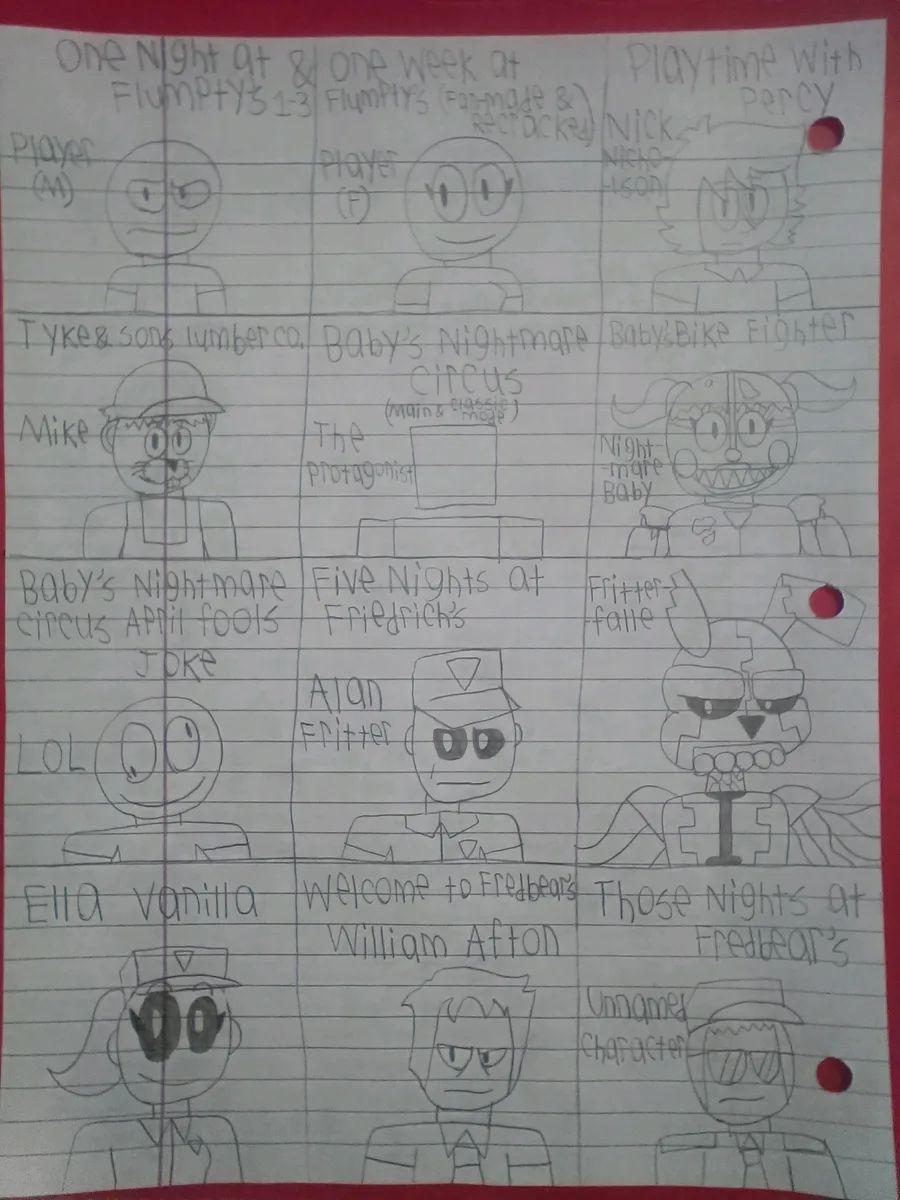 One Night at &
Flumpty's 1-3
Player
(M)
One Week at
Flumpty's (Fan-made &
Recracked)
Player
(F)
Playtime with
Percy
Nick
Nicho-
-lson
Tyke & sons lumber co.
Mike
Baby's Nightmare
Circus
(Main & classic
mode)
The
protagonist
Baby's Bike Fighter
Night-
-mare
Baby
Baby's Nightmare
circus April fools
Joke
LOL
Five Nights at
Friedrich's
Alan
Fritter
Fritter-
-falle
Ella Vanilla
Welcome to Fredbear's
William Afton
Those Nights at
Fredbear's
Unnamed
character